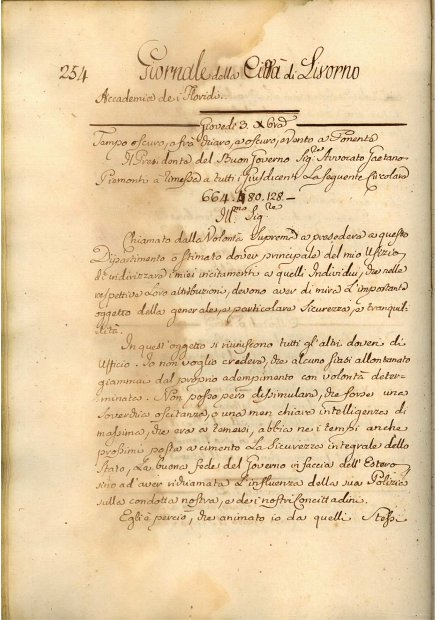 254 Giornale della Città di Livorno
Accademia de i Floridi.
Giovedì 3. Xbre
Tempo oscuro, o frà chiaro, e oscuro, e Vento a Ponente
Il Presidente del Buon Governo Sigre Avvocato Gaetano
Piemonti à rimessa a tutti i Giusdicenti La seguente Circolare
664. 480. 128. —
Illmo Sigre
Chiamato dalla Volontà Suprema a presedere a questo
Dipartimento ò stimato dover principale del mio Ufizio,
di indirizzare i miei incitamenti a quelli Individui, che nelle
respettive Loro attribuzioni, devono aver di mira L'importante
oggetto della generale, e particolare Sicurezza, e tranquil-
lità.
In quest'oggetto si riuniscono tutti gl'altri doveri di
Ufficio. Io non voglio credere, che alcuno siasi allontanato
giammai dal proprio adempimento con volontà deter-
minata. Non posso però dissimulare, che forse una
soverchia oscitanza, o una men chiara intelligenza di
massima, che era a temersi, abbia ne i tempi anche
prossimi posta a cimento La Sicurezza integrale dello
Stato, La buona fede del Governo in faccia dell'Estero,
sino ad aver richiamata L'influenza della sua Polizia
sulla condotta nostra, e de i nostri Concittadini.
Egli è perciò, che animato io da quelli Stessi